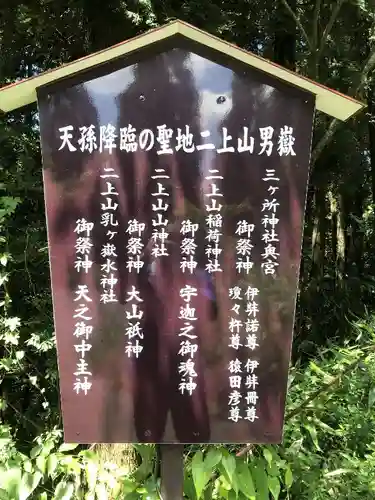 天孫降臨の聖地二上山男嶽
三ヶ所神社奥宮
御祭神 伊弉諾尊 伊弉冊尊
瓊々杵尊 猿田彦尊
二上山稲荷神社
御祭神 宇迦之御魂神
二上山山神社
御祭神 大山祇神
二上山乳ヶ嶽水神社
御祭神 天之御中主神